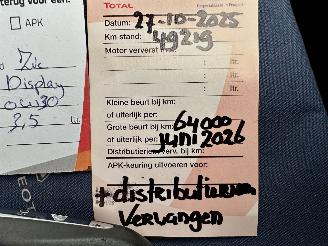 terug voor een:
APK
Zie
Display
0W30
3,5 ltr.
TOTAL
Datum: 27-10-2025
Km stand: 49219
Motor ververst met:
ltr.
ltr.
ltr.
Kleine beurt bij km:
of uiterlijk per:
Grote beurt bij km: 64000
of uiterlijk per: Juni 2026
Distributieriem verv. bij km:
APK-keuring uitvoeren voor:
+ distributieriem
Vervangen